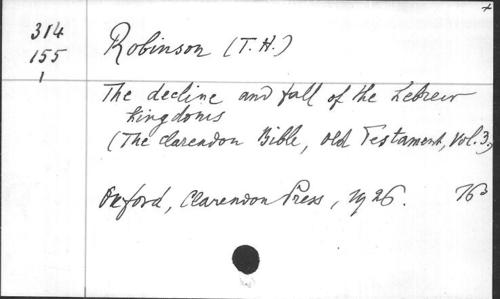 314
155
1
Robinson (T.H.)
The decline and fall of the Hebrew
kingdoms
(The Clarendon Bible, Old Testament, Vol. 3.)
Oxford, Clarendon Press, 1926. 76³